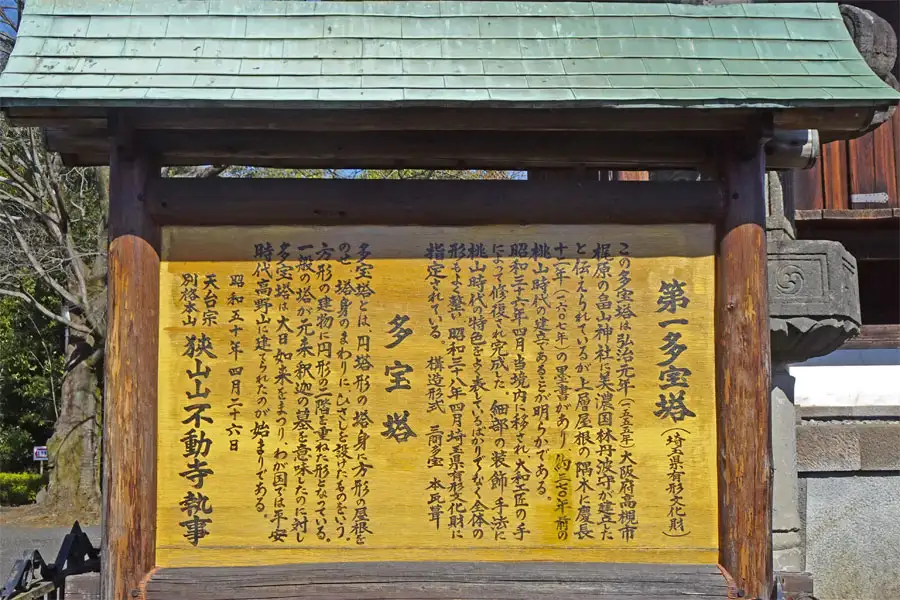 第一多宝塔(埼玉県有形文化財)
この多宝塔は弘治元年(一五五五年)大阪府高槻市
梶原の畠山神社に美濃国林丹波守が建立した
と伝えられているが上層屋根の隅木に慶長
十二年(一六〇七年)の墨書があり約三七〇年前の
桃山時代の建立であることが明らかである。
昭和三十六年四月当境内に移され大和工匠の手
によって修復が完成した 細部の装飾 手法に
桃山時代の特色をよく表しているばかりでなく全体の
形もよく整い 昭和三十八年四月埼玉県有形文化財に
指定されている。 構造形式 三間多宝 本瓦葺
多宝塔
多宝塔とは、円塔形の塔身に方形の屋根を
のせ 塔身のまわりにひさしを設けたものをいう。
方形の建物に円形の二階を重ねた形となっている。
一般の塔が元来釈迦の墓を意味したのに対し
多宝塔は大日如来をまつり、わが国では平安
時代高野山に建てられたのが始まりである。
昭和五十年四月二十六日
天台宗
別格本山
狭山山不動寺執事